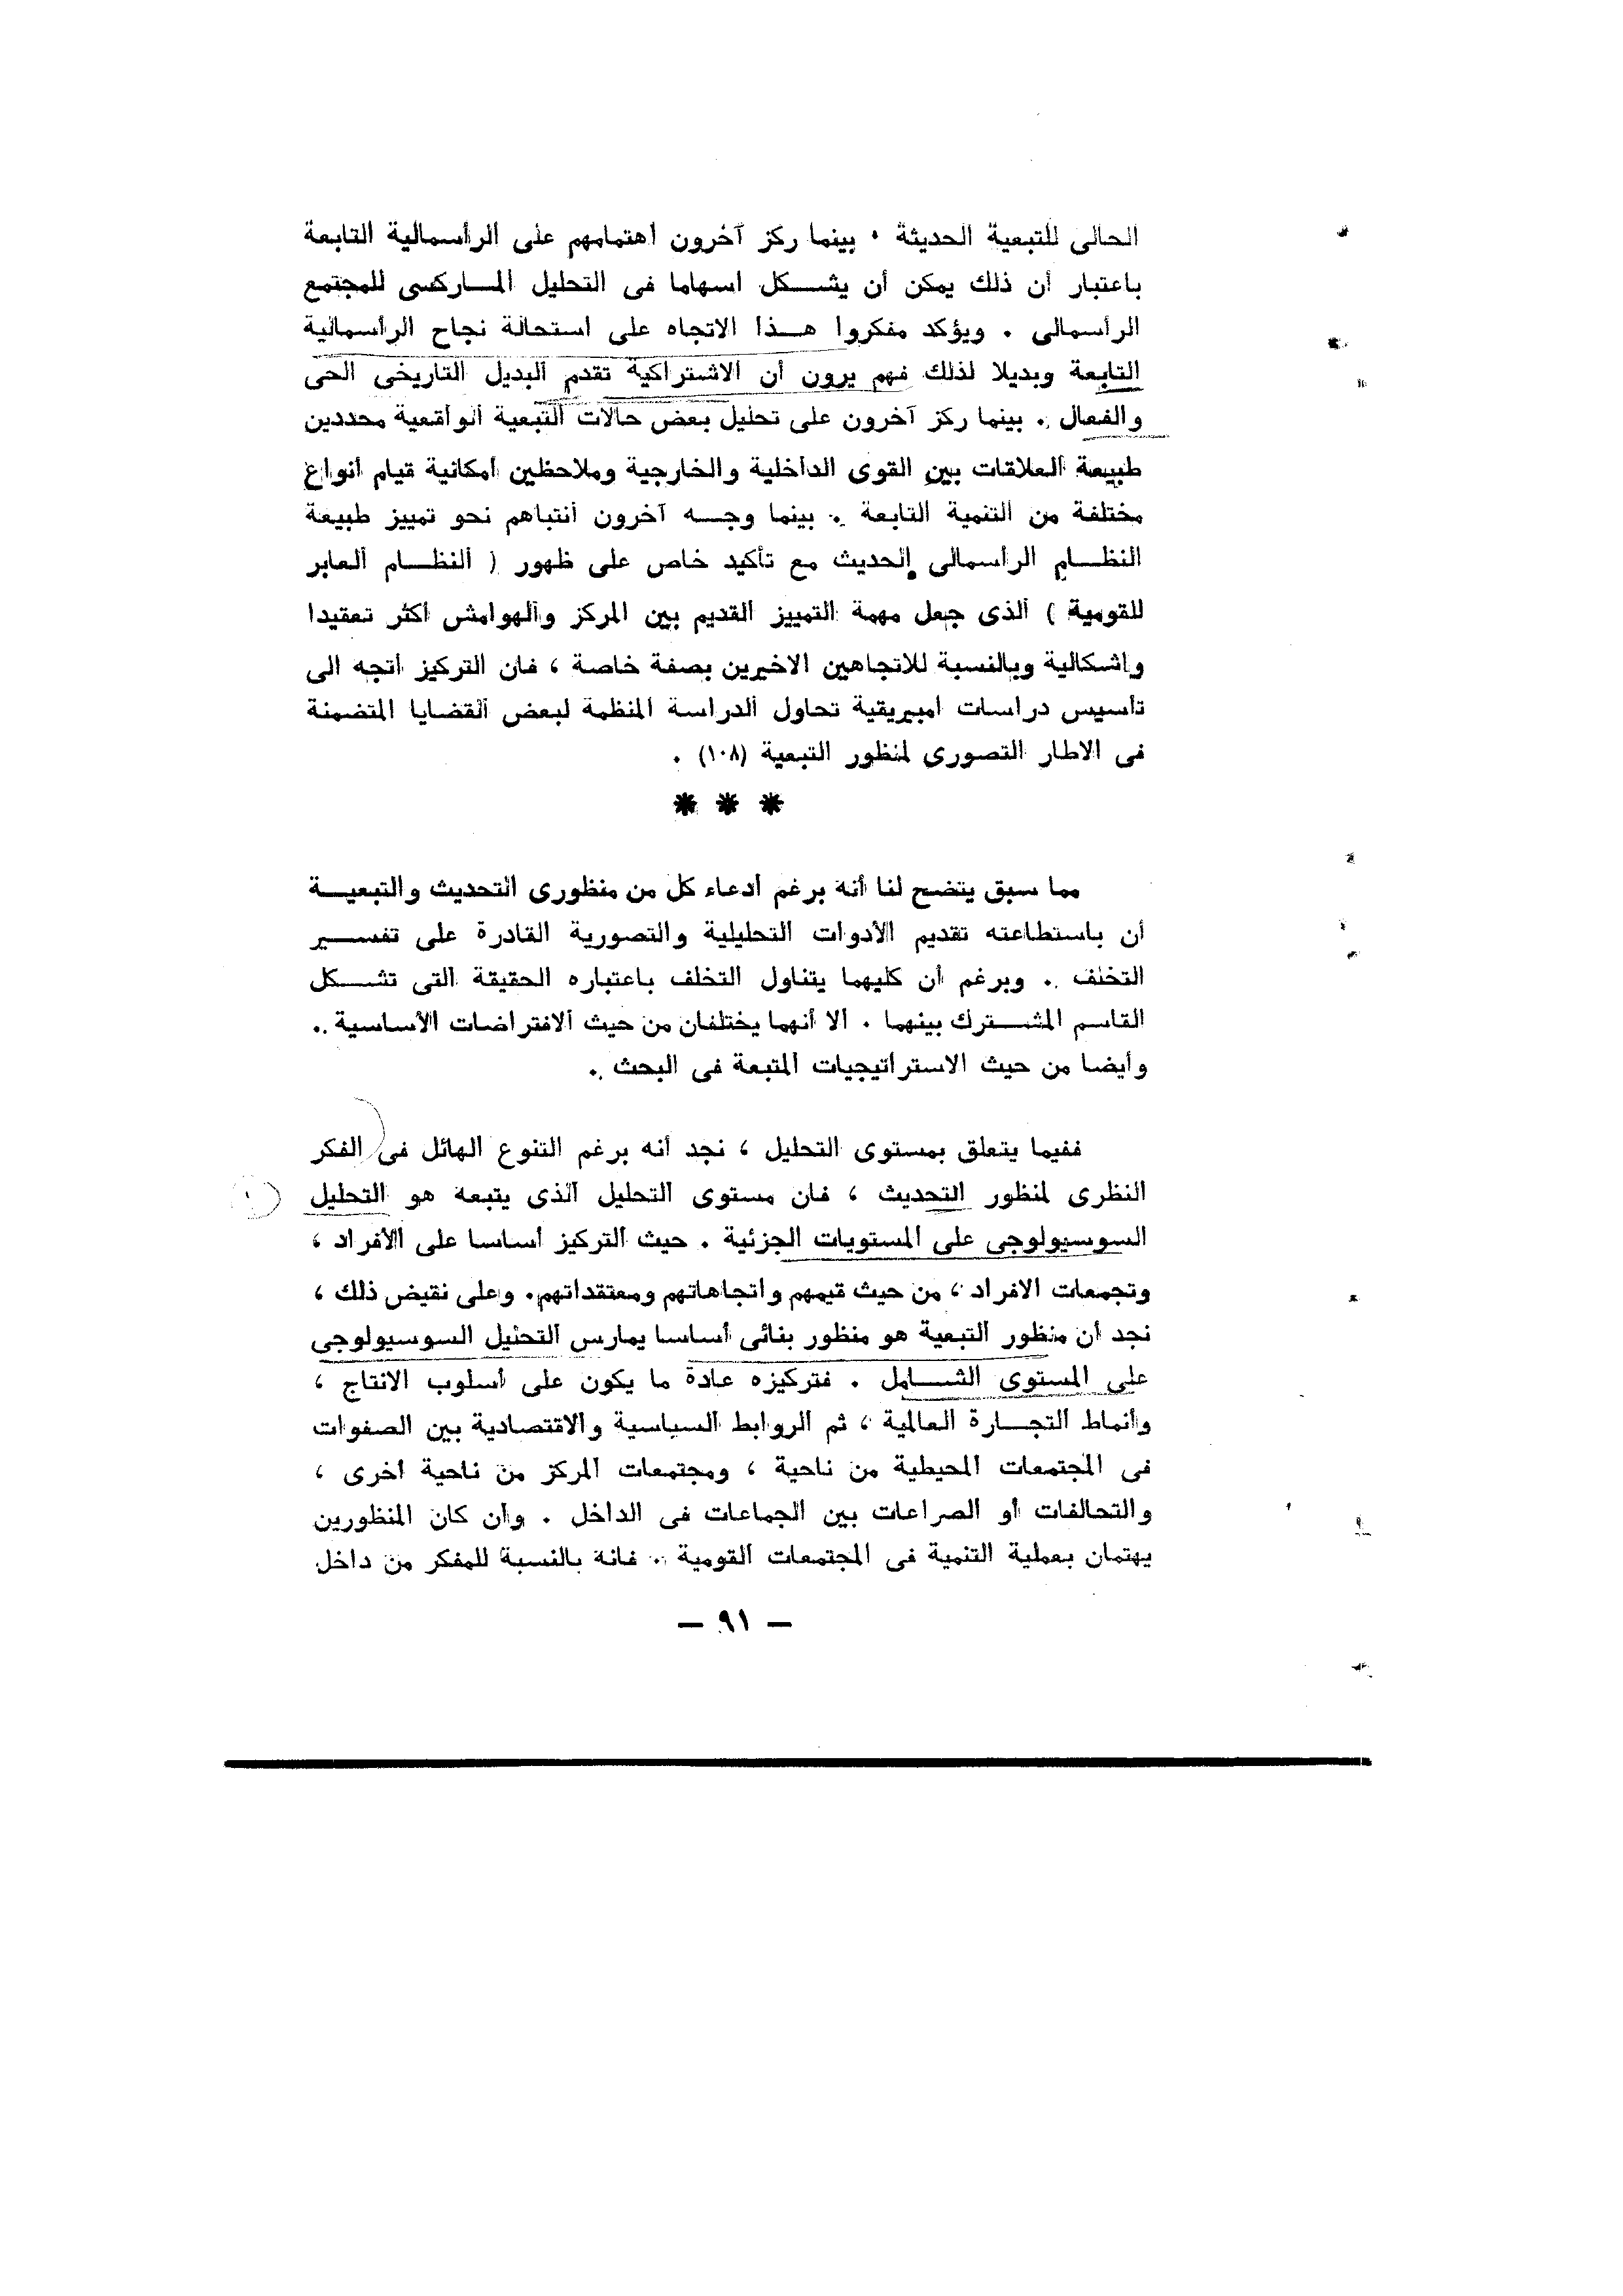 الحالى للتبعية الحديثة ٠ بينما ركز آخرون اهتمامهم على الرأسمالية التابعة
باعتبار أن ذلك يمكن أن يشكل اسهاما فى التحليل الماركسى للمجتمع
الرأسمالى . ويؤكد مفكروا هذا الاتجاه على استحالة نجاح الرأسمالية
التابعة وبديلا لذلك فهم يرون أن الاشتراكية تقدم البديل التاريخى الحى
والفعال . بينما ركز آخرون على تحليل بعض حالات التبعية الواقعية محددين
طبيعة العلاقات بين القوى الداخلية والخارجية وملاحظين امكانية قيام أنواع
مختلفة من التنمية التابعة . بينما وجه آخرون انتباهم نحو تمييز طبيعة
النظام الرأسمالى الحديث مع تأكيد خاص على ظهور ( النظام العابر
للقومية ) الذى جعل مهمة التمييز القديم بين المركز والهوامش أكثر تعقيدا
واشكالية وبالنسبة للاتجاهين الاخيرين بصفة خاصة ، فان التركيز اتجه الى
تأسيس دراسات امبيريقية تحاول الدراسة المنظمة لبعض القضايا المتضمنة
فى الاطار التصورى لمنظور التبعية (١٠٨) .
* * *
مما سبق يتضح لنا أنه برغم ادعاء كل من منظورى التحديث والتبعية
أن باستطاعته تقديم الأدوات التحليلية والتصورية القادرة على تفسير
التخلف . وبرغم أن كليهما يتناول التخلف باعتباره الحقيقة التى تشكل
القاسم المشترك بينهما . الا أنهما يختلفان من حيث الافتراضات الأساسية .
وأيضا من حيث الاستراتيجيات المتبعة فى البحث .
ففيما يتعلق بمستوى التحليل ، نجد أنه برغم التنوع الهائل فى الفكر
النظرى لمنظور التحديث ، فان مستوى التحليل الذى يتبعه هو التحليل
السوسيولوجى على المستويات الجزئية . حيث التركيز أساسا على الأفراد ،
وتجمعات الافراد ، من حيث قيمهم واتجاهاتهم ومعتقداتهم. وعلى نقيض ذلك ،
نجد أن منظور التبعية هو منظور بنائى أساسا يمارس التحليل السوسيولوجى
على المستوى الشامل . فتركيزه عادة ما يكون على أسلوب الانتاج ،
وأنماط التجارة العالمية ، ثم الروابط السياسية والاقتصادية بين الصفوات
فى المجتمعات المحيطية من ناحية ، ومجتمعات المركز من ناحية أخرى ،
والتحالفات أو الصراعات بين الجماعات فى الداخل . وان كان المنظورين
يهتمان بعملية التنمية فى المجتمعات القومية . فانه بالنسبة للمفكر من داخل
— ٩١ —